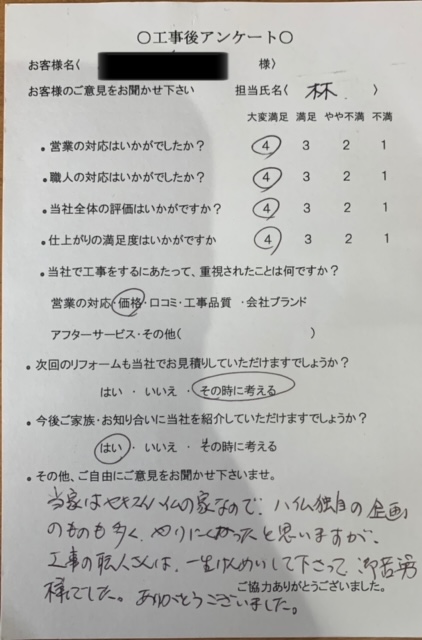 ○工事後アンケート○
お客様名( 様)
お客様のご意見をお聞かせ下さい 担当氏名( 林 )
大変満足 満足 やや不満 不満
・営業の対応はいかがでしたか? 4 3 2 1
・職人の対応はいかがでしたか? 4 3 2 1
・当社全体の評価はいかがですか? 4 3 2 1
・仕上がりの満足度はいかがですか 4 3 2 1
・当社で工事をするにあたって、重視されたことは何ですか?
営業の対応・価格・口コミ・工事品質 ・会社ブランド
アフターサービス・その他( )
・次回のリフォームも当社でお見積りしていただけますでしょうか?
はい ・ いいえ ・ その時に考える
・今後ご家族・お知り合いに当社を紹介していただけますでしょうか?
はい ・ いいえ ・ その時に考える
・その他、ご自由にご意見をお聞かせ下さいませ。
当家はセキスイハイムの家なので、ハイム独自の企画
のものも多く、やりにくかったと思いますが、
工事の職人さんは、一生けんめいして下さって御苦労
様でした。ありがとうございました。
ご協力ありがとうございました。